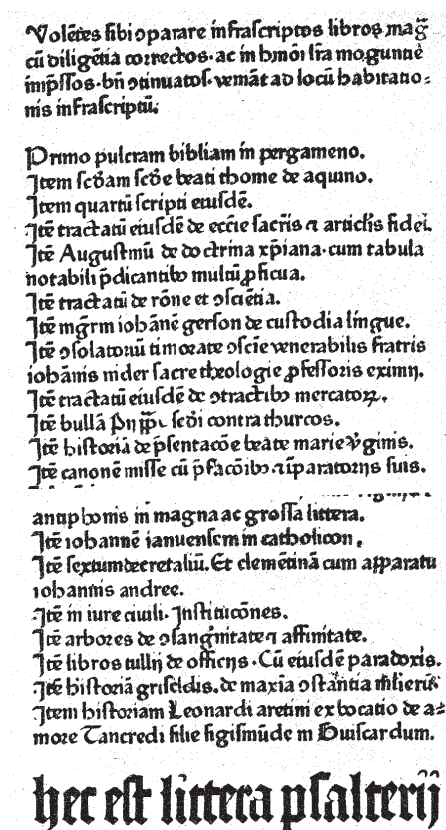 Volētes sibi ꝯparare infrascriptos libros mag̃
cū diligētia correctos. ac in hmōi lr̄a moguntie
imp̄ssos. bn̄ ꝯtinuatos. veniāt ad locū habitatio⸗
nis infrascriptū.
Primo pulcram bibliam in pergameno.
Item scd̄am scd̄e beati thome de aquino.
Item quartū scripti eiusdē.
Itē tractatū eiusdē de eccīe sacr̄is ⁊ articlīs fidei.
Itē Augustinū de doctrina xp̄iana. cum tabula
notabili p̄dicantibꝰ multū ꝓficua.
Itē tractatū de rōne et ꝯsciētia.
Itē mgr̄m iohānē gerson de custodia lingue.
Itē ꝯsolatoriū timorate ꝯscīe venerabilis fratris
iohānis nider sacre theologie ꝓfessoris eximij.
Itē tractatū eiusdē de ꝯtractibꝰ mercatoꝝ.
Itē bullā pij pp̄e scd̄i contra thurcos.
Itē historiā de p̄sentacōe beate marie ṽginis.
Itē canonē misse cū p̄facōibꝰ ⁊ īparatorijs suis.
antiphonis in magna ac grossa littera.
Itē iohannē ianuensem in catholicon.
Itē sextumdecretaliū. Et clemētinā cum apparatu
iohannis andree.
Itē in iure ciuili. Institucōnes.
Itē arbores de ꝯsang̃nitate ⁊ affinitate.
Itē libros tullij de officijs. Cū eiusdē paradoxis.
Itē historiā griseldis. de maxīa ꝯstantia ml̄ieris
Item historiam Leonardi aretini ex bocatio de a⸗
more Tancredi filie sigismūde in Guiscardum.
hec est littera psalterij